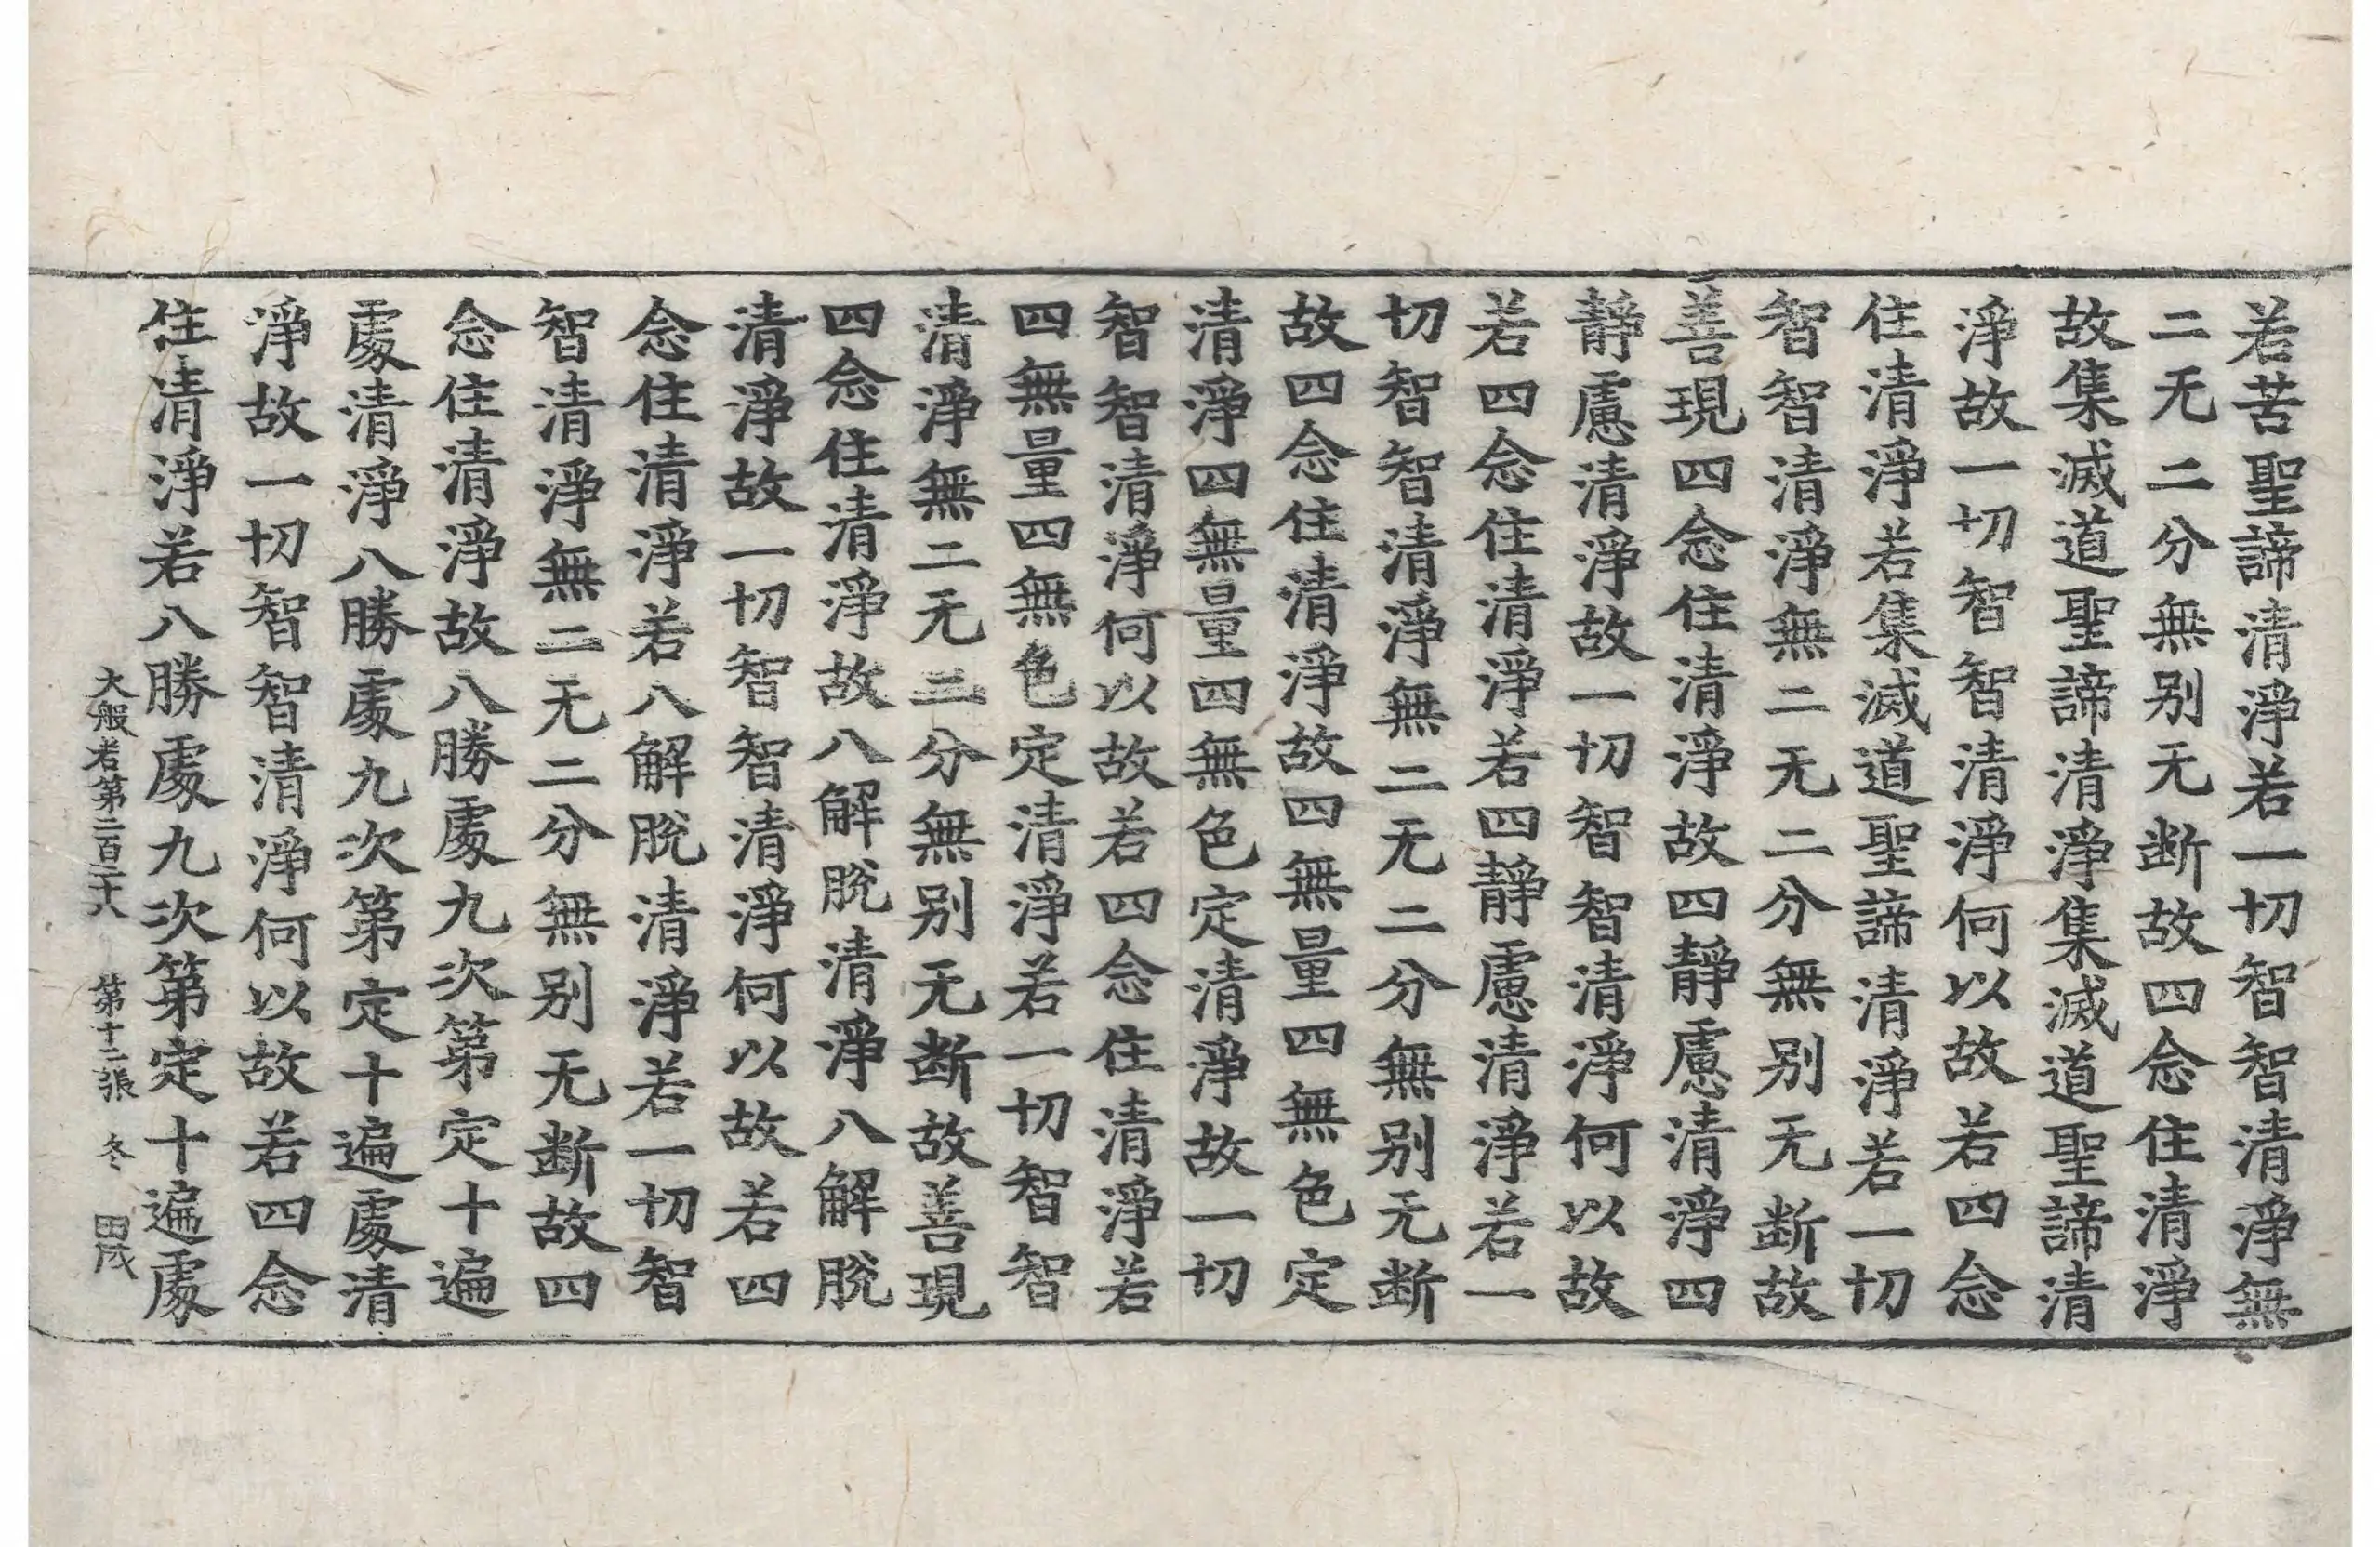 若苦聖諦清淨若一切智智清淨無
二无二分無别无断故四念住清淨
故集滅道聖諦清淨集滅道聖諦清
淨故一切智智清淨何以故若四念
住清淨若集滅道聖諦清淨若一切
智智清淨無二无二分無别无断故
善現四念住清淨故四靜慮清淨四
靜慮清淨故一切智智清淨何以故
若四念住清淨若四靜慮清淨若一
切智智清淨無二无二分無别无断
故四念住清淨故四無量四無色定
清淨四無量四無色定清淨故一切
智智清淨何以故若四念住清淨若
四無量四無色定清淨若一切智智
清淨無二无二分無别无断故善現
四念住清淨故八解脫清淨八解脫
清淨故一切智智清淨何以故若四
念住清淨若八解脫清淨若一切智
智清淨無二无二分無别无断故四
念住清淨故八勝處九次第定十遍
處清淨八勝處九次第定十遍處清
淨故一切智智清淨何以故若四念
住清淨若八勝處九次第定十遍處
大般若第二百二十八 第十二張 冬 田茂